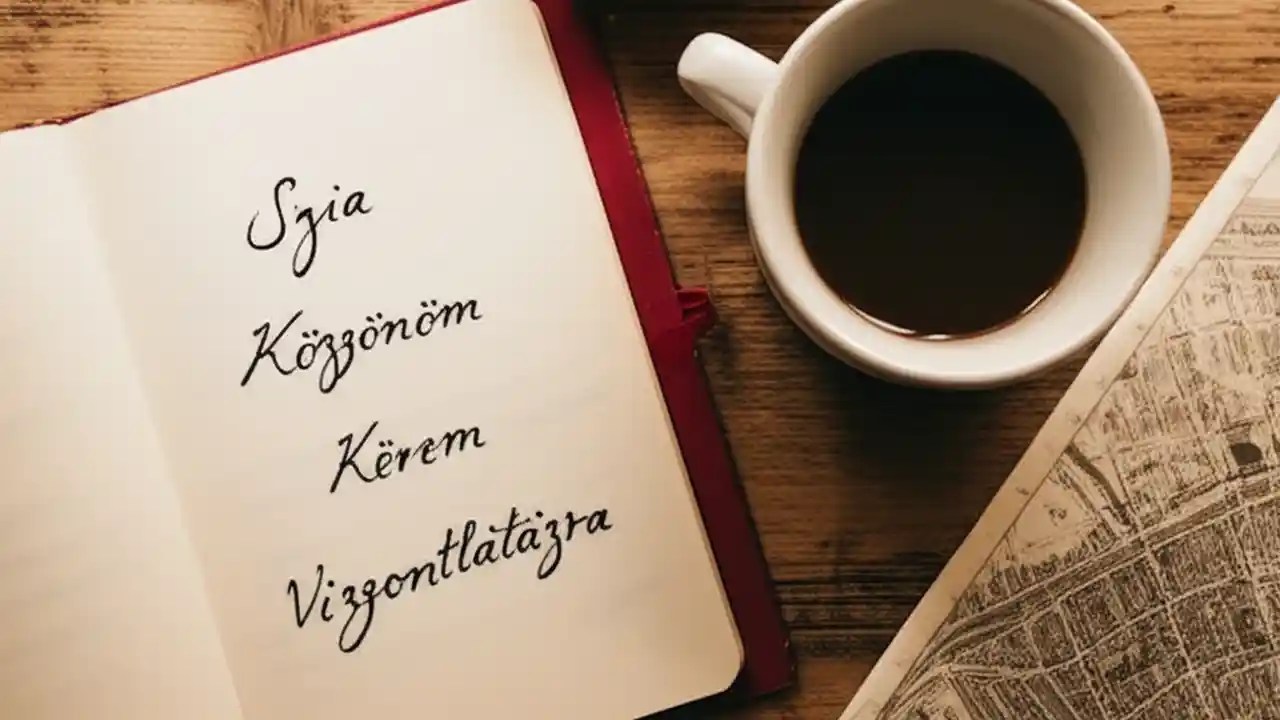 Szia
Közzönöm
Kërem
Vizzontlátázra